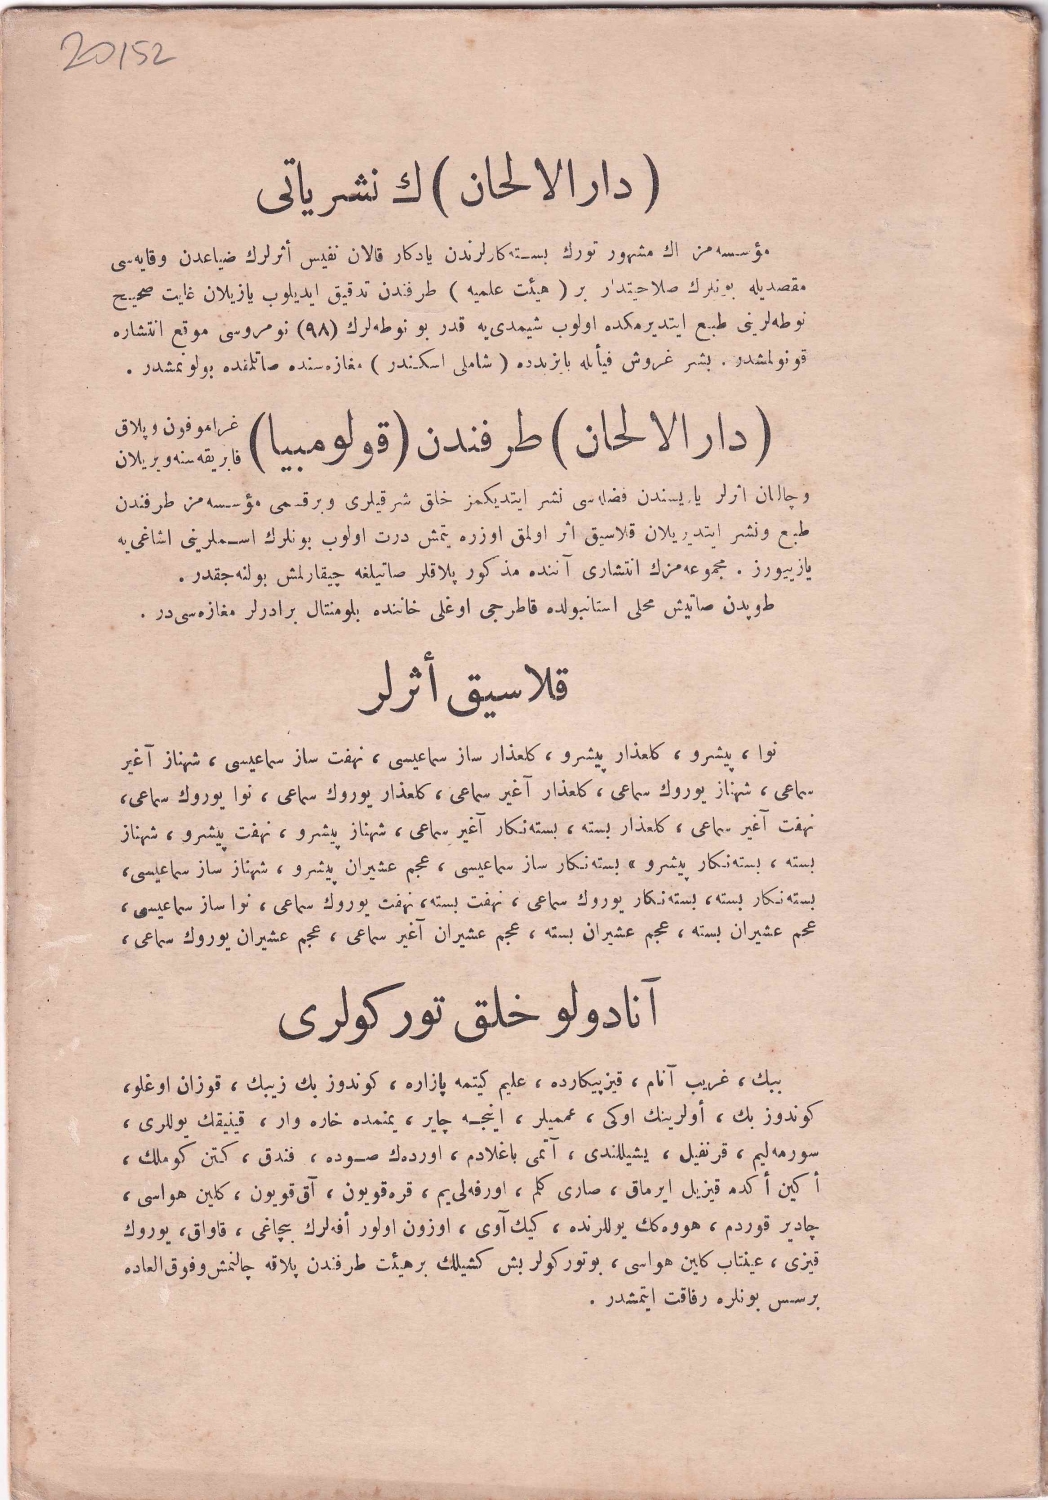 20152
( دار الالحان ) ك نشریاتی
مؤسسه‌مز اك مشهور تورك بسته‌كارلرندن یادكار قالان نفیس أثرلرك ضیاعدن وقایه‌سی
مقصدیله بونلرك صلاحیتدار بر ( هیئت علمیه ) طرفندن تدقیق ایدیلوب یازیلان غایت صحیح
نوطه‌لرینی طبع ایتدیرمكده اولوب شیمدی‌یه قدر بو نوطه‌لرك (٩٨) نومروسی موقع انتشاره
قونولمشدر . بشر غروش فیأتله بایزیدده ( شاملی اسكندر ) مغازه‌سنده صاتلمقده بولونمشدر .
( دار الالحان ) طرفندن (قولومبیا) غراموفون وپلاق
فابریقه‌سنه ویریلان
وچالنان اثرلر یاریسندن فضله‌سی نشر ایتدیكمز خلق شرقیلری وبرقسمی مؤسسه‌مز طرفندن
طبع ونشر ایتدیریلان قلاسیق اثر اولمق اوزره یتمش درت اولوب بونلرك اسملرینی اشاغی‌یه
یازییورز . مجموعه‌مزك انتشاری آننده مذكور پلاقلر صاتیلغه چیقارلمش بولنه‌جقدر .
طوپدن صاتیش محلی استانبولده قاطرجی اوغلی خاننده بلومنتال برادرلر مغازه‌سی‌در .
قلاسیق أثرلر
نوا ، پیشرو ، كلعذار پیشرو ، كلعذار ساز سماعیسی ، نهفت ساز سماعیسی ، شهناز آغیر
سماعی ، شهناز یوروك سماعی ، كلعذار آغیر سماعی ، كلعذار یوروك سماعی ، نوا یوروك سماعی،
نهفت آغیر سماعی ، كلعذار بسته ، بسته‌نكار آغیر سماعی ، شهناز پیشرو ، نهفت پیشرو ، شهناز
بسته ، بسته‌نكار پیشرو » بسته‌نكار ساز سماعیسی ، عجم عشیران پیشرو ، شهناز ساز سماعیسی،
بسته‌نكار بسته، بسته‌نكار یوروك سماعی ، نهفت بسته، نهفت یوروك سماعی ، نوا ساز سماعیسی ،
عجم عشیران بسته ، عجم عشیران بسته ، عجم عشیران آغیر سماعی ، عجم عشیران یوروك سماعی ،
آنادولو خلق توركولری
ببك ، غریب آنام ، قیزپیكارده ، علیم كیتمه پازاره ، كوندوز بك زیبك ، قوزان اوغلو،
كوندوز بك ، أولرینك اوكی ، عممیلر ، اینجـه چایر ، یمنمده خاره وار ، قینیقك یوللری ،
سورمه‌لیم ، قرنفیل ، یشیللندی ، آتمی باغلادم ، اورده‌ك صـوده ، فندق ، كتن كوملك ،
أكین أكدم قیزیل ایرماق ، صاری كلم ، اورفه‌لی‌یم ، قره‌قویون ، آق‌قویون ، كلین هواسی ،
چادیر قوردم ، هووه‌كك یوللرنده ، كیك آوی ، اوزون اولور أفه‌لرك بیچاغی ، قاواق، یوروك
قیزی ، عینتاب كلین هواسی ، بوتوركولر بش كشیلك برهیئت طرفندن پلاقه چالنمش وفوق‌العاده
برسس بونلره رفاقت ایتمشدر .